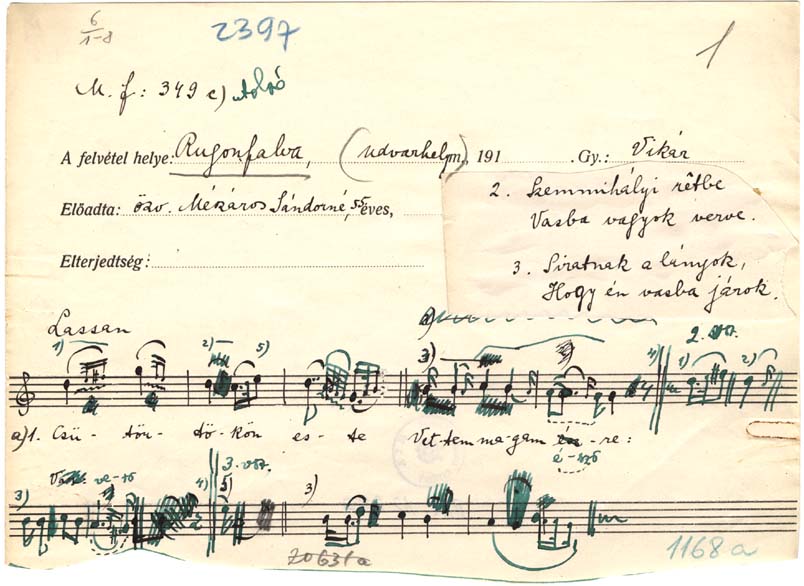 6
1-8
2397
1
M. f: 349 c) utolsó
A felvétel helye: Rugonfalva, (Udvarhelym.), 191 Gy.: Vikár
Előadta: özv. Mészáros Sándorné, 55 éves,
Elterjedtség:
2. Szemmihályi rétbe
Vasba vagyok verve.
3. Siratnak a lányok,
Hogy én vasba járok.
Lassan
1) 2) 5) 3) 4) 2. vsz. 1) 2)
a) 1. Csü - tön - tö - kön es - te Vet - tem ma - gam - re:
é - szö
3) ve - rő 4) 3. vsz. 5) 3)
20631a
1168 a